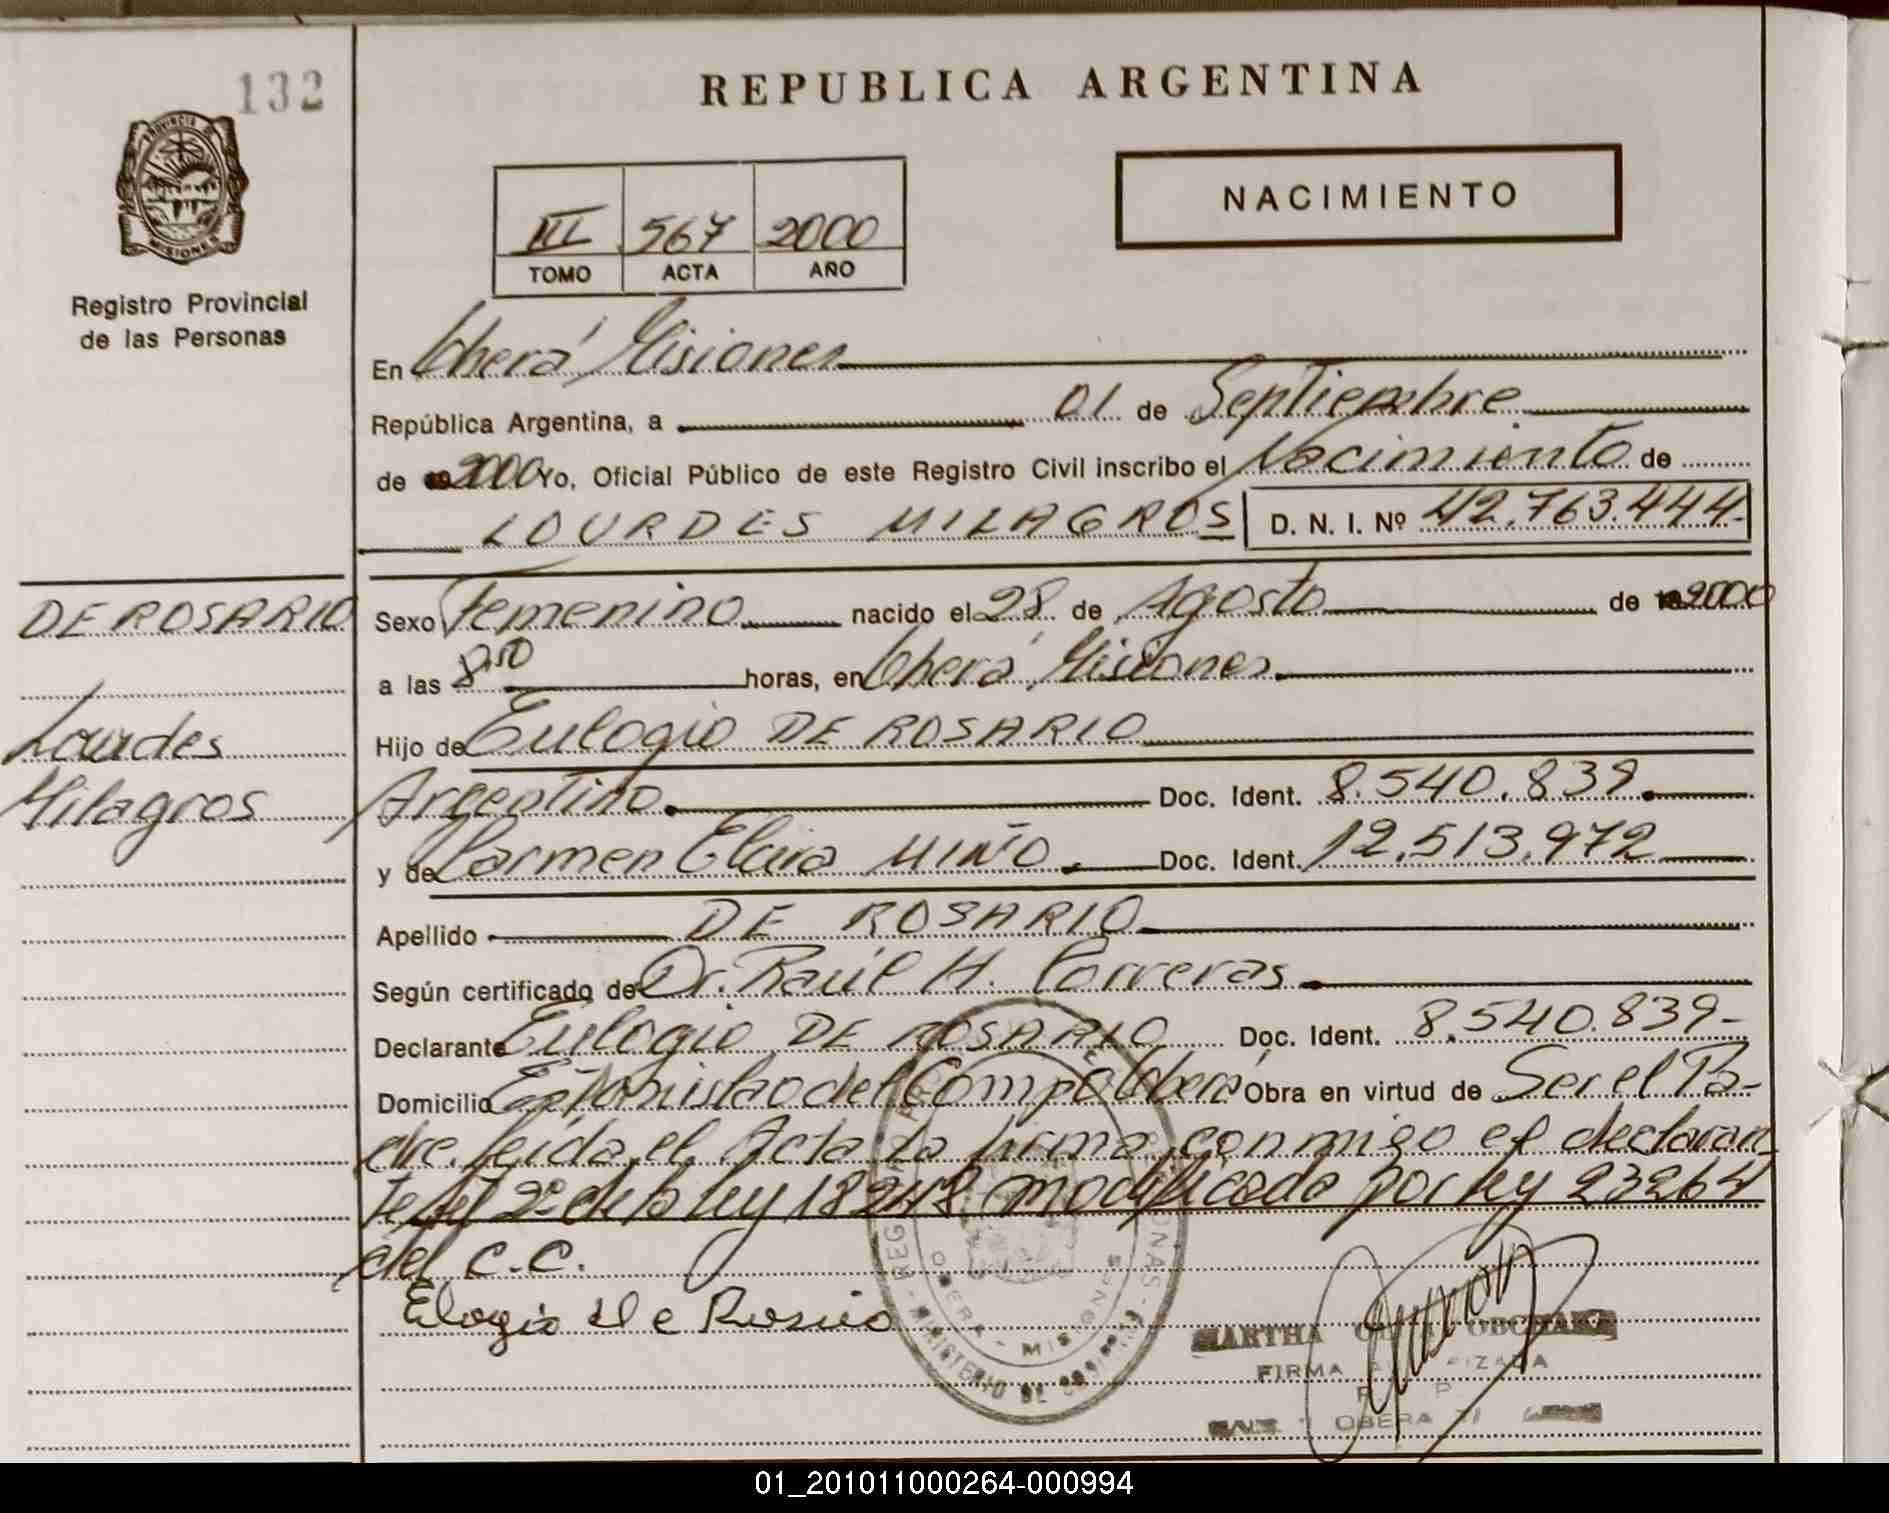 132
REPUBLICA ARGENTINA
PROVINCIA DE
MISIONES
Registro Provincial
de las Personas
NACIMIENTO
III 567 2000
TOMO ACTA AÑO
En Oberá Misiones
República Argentina, a 01 de Septiembre
de 2000 Yo, Oficial Público de este Registro Civil inscribo el Nacimiento de
LOURDES MILAGROS D. N. I. Nº 42.763.444.
DE ROSARIO
Lourdes
Milagros
Sexo Femenino nacido el 28 de Agosto de 2000
a las 8,50 horas, en Oberá Misiones
Hijo de Eulogio DE ROSARIO
Argentino. Doc. Ident. 8.540.839.
y de Carmen Elvira MIÑO. Doc. Ident. 12.513.972
Apellido DE ROSARIO
Según certificado de Dr. Raúl H. Porreras
Declarante Eulogio DE ROSARIO Doc. Ident. 8.540.839-
Domicilio Estanislao del Campo Oberá Obra en virtud de Ser el Pa-
dre. leída el Acta la firma conmigo el declaran
te 2º de la ley 18248 modificada por ley 23264
del C.C.
Elogio de Rosario
MARTHA
FIRMA
OBERA
OBERA - MISIONES
MINISTERIO DE GOBIERNO
01_201011000264-000994